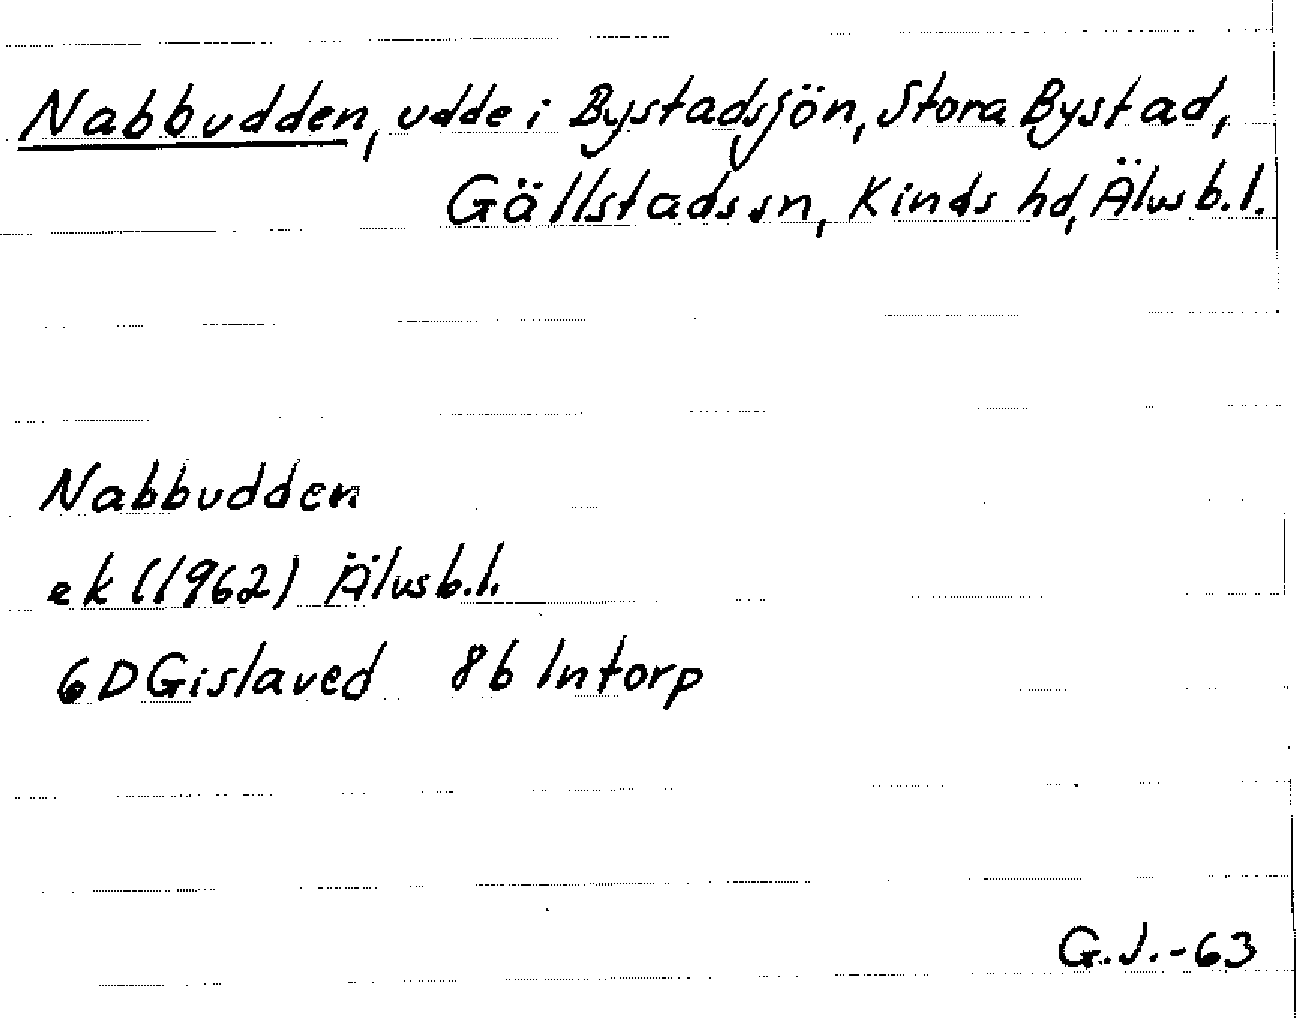 Nabbudden, udde i Bystadsjön, Stora Bystad,
Gällstads sn, Kinds hd, Älvsb.l.
Nabbudden
ek (1962) Älvsb.l.
6D Gislaved 8b Intorp
G.J.-63